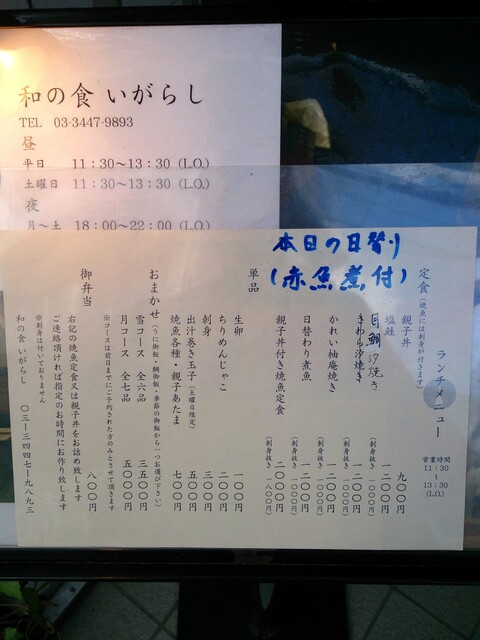 和の食 いがらし
TEL 03-3447-9893
昼
平日 11：30〜13：30 (L.O.)
土曜日 11：30〜13：30 (L.O.)
夜
月〜土 18：00〜22：00 (L.O.)
本日の日替り
(赤魚煮付)
ランチメニュー
営業時間
11：30
〜
13：30
(L.O.)
定食（焼魚には刺身が付きます）
親子丼 九〇〇円
塩鮭 一二〇〇円
(刺身抜き 一〇〇〇円)
目鯛汐焼き 一二〇〇円
(刺身抜き 一〇〇〇円)
さわら汐焼き 一二〇〇円
(刺身抜き 一〇〇〇円)
かれい柚庵焼き 一二〇〇円
(刺身抜き 一〇〇〇円)
日替わり煮魚 一二〇〇円
(刺身抜き 一〇〇〇円)
親子丼付き焼魚定食 二〇〇〇円
(刺身抜き 一八〇〇円)
単品
生卵 一〇〇円
ちりめんじゃこ 二〇〇円
刺身 三〇〇円
出汁巻き玉子（土曜日限定） 五〇〇円
焼魚各種・親子あたま 七〇〇円
おまかせ（うに御飯・鯛御飯・季節の御飯から一つお選び下さい）
雪コース 全六品 三五〇〇円
月コース 全七品 五〇〇〇円
※コースは前日までにご予約された方のみとさせて頂きます
御弁当 八〇〇円
右記の焼魚定食又は親子丼をお詰め致します
ご連絡頂ければ指定のお時間にお作り致します
※刺身は付いておりません
和の食 いがらし 〇三-三四四七-九八九三